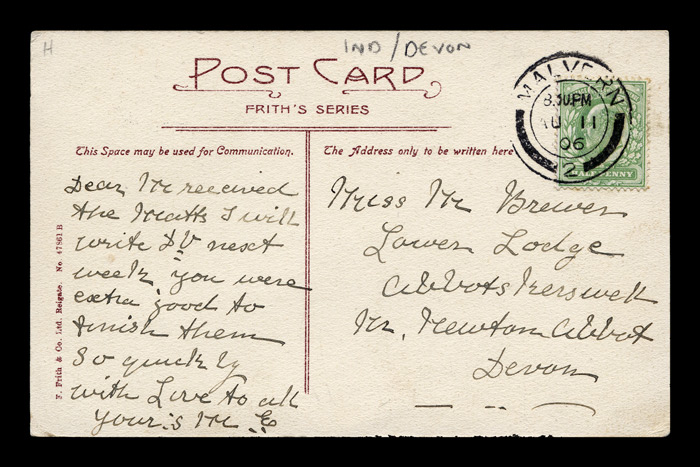 H
IND/DEVON
POST CARD
FRITH'S SERIES
This Space may be used for Communication.
The Address only to be written here
MALVERN
8.30PM
AU 11
06
2
HALF PENNY
Dear M received
the Matts I will
write D.V next
week you were
extra good to
finish them
So quickly
with Love to all
Your's M E
Miss M Brewer
Lower Lodge
Abbotskerswell
Nr. Newton Abbot
Devon
F. Frith & Co. Ltd. Reigate. No. 47861B